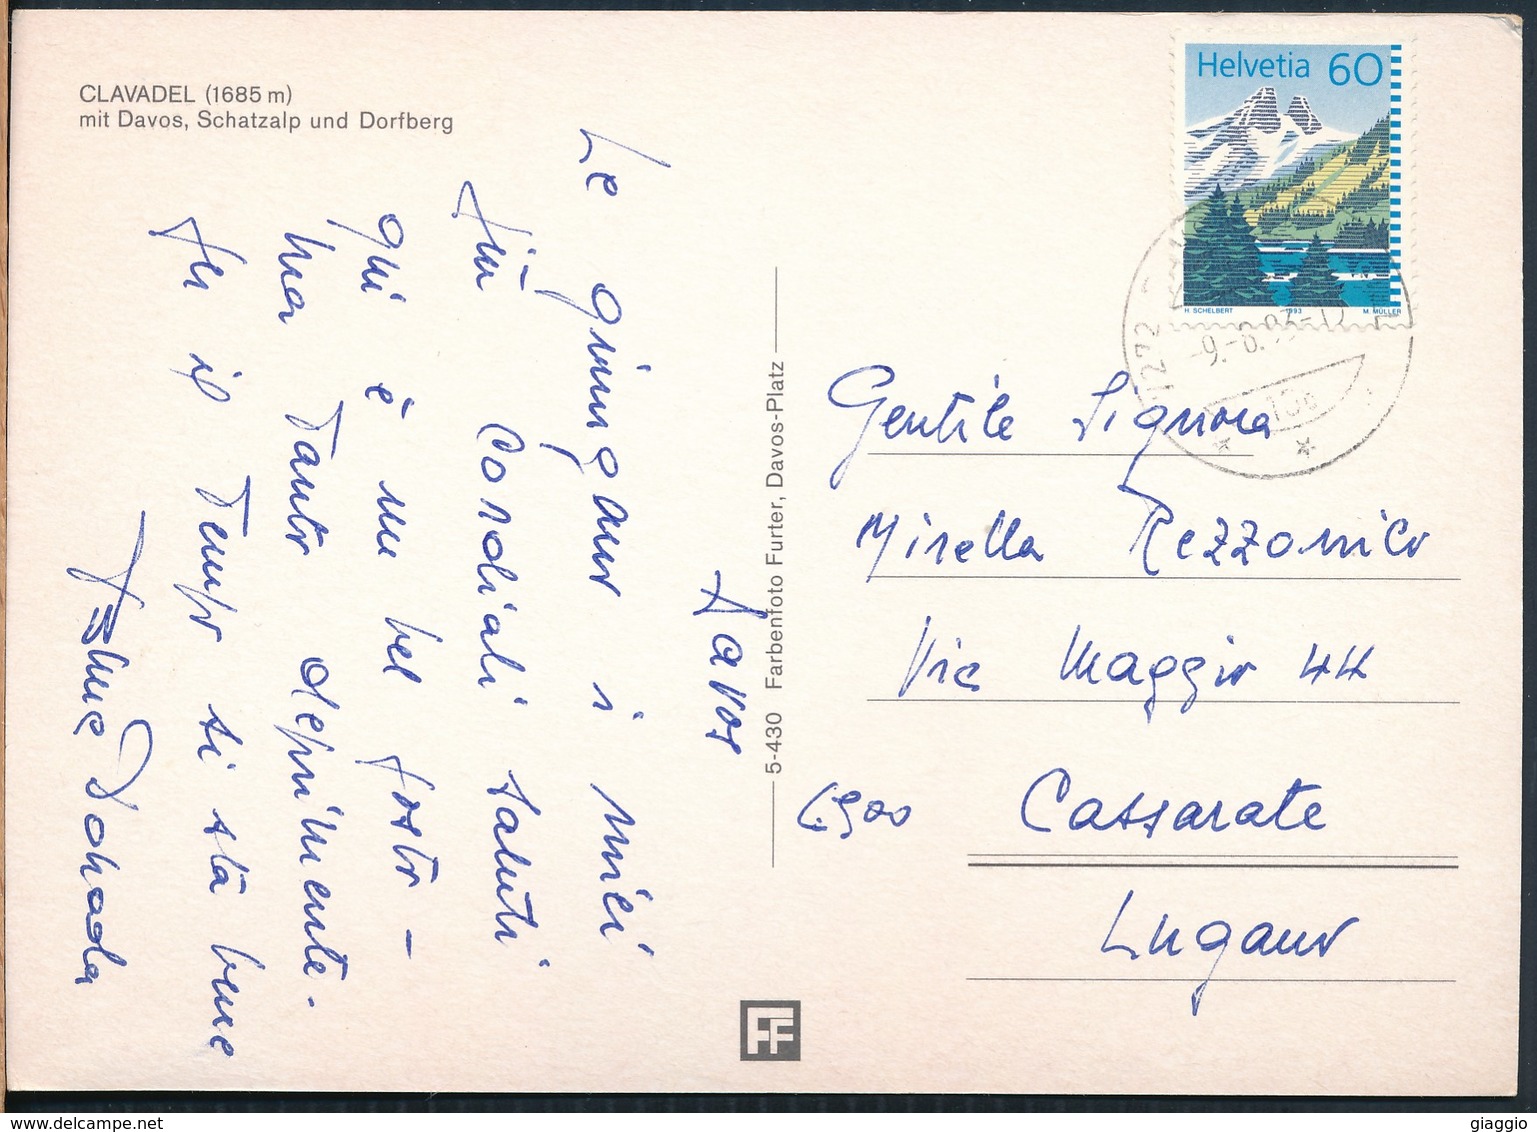 CLAVADEL (1685 m)
mit Davos, Schatzalp und Dorfberg
Helvetia 60
H. SCHELBERT 1993 M. MÜLLER
7272
Davos
Le giungano i miei
più cordiali saluti
qui è un bel posto –
ma tanto deprimente.
il tempo si sta bene
5-430 Farbenfoto Furter, Davos-Platz
FF
Gentile Signora
Mirella Rezzonico
Via Maggio 44
6900 Cassarate
Lugano
delcampe.net
giaggio